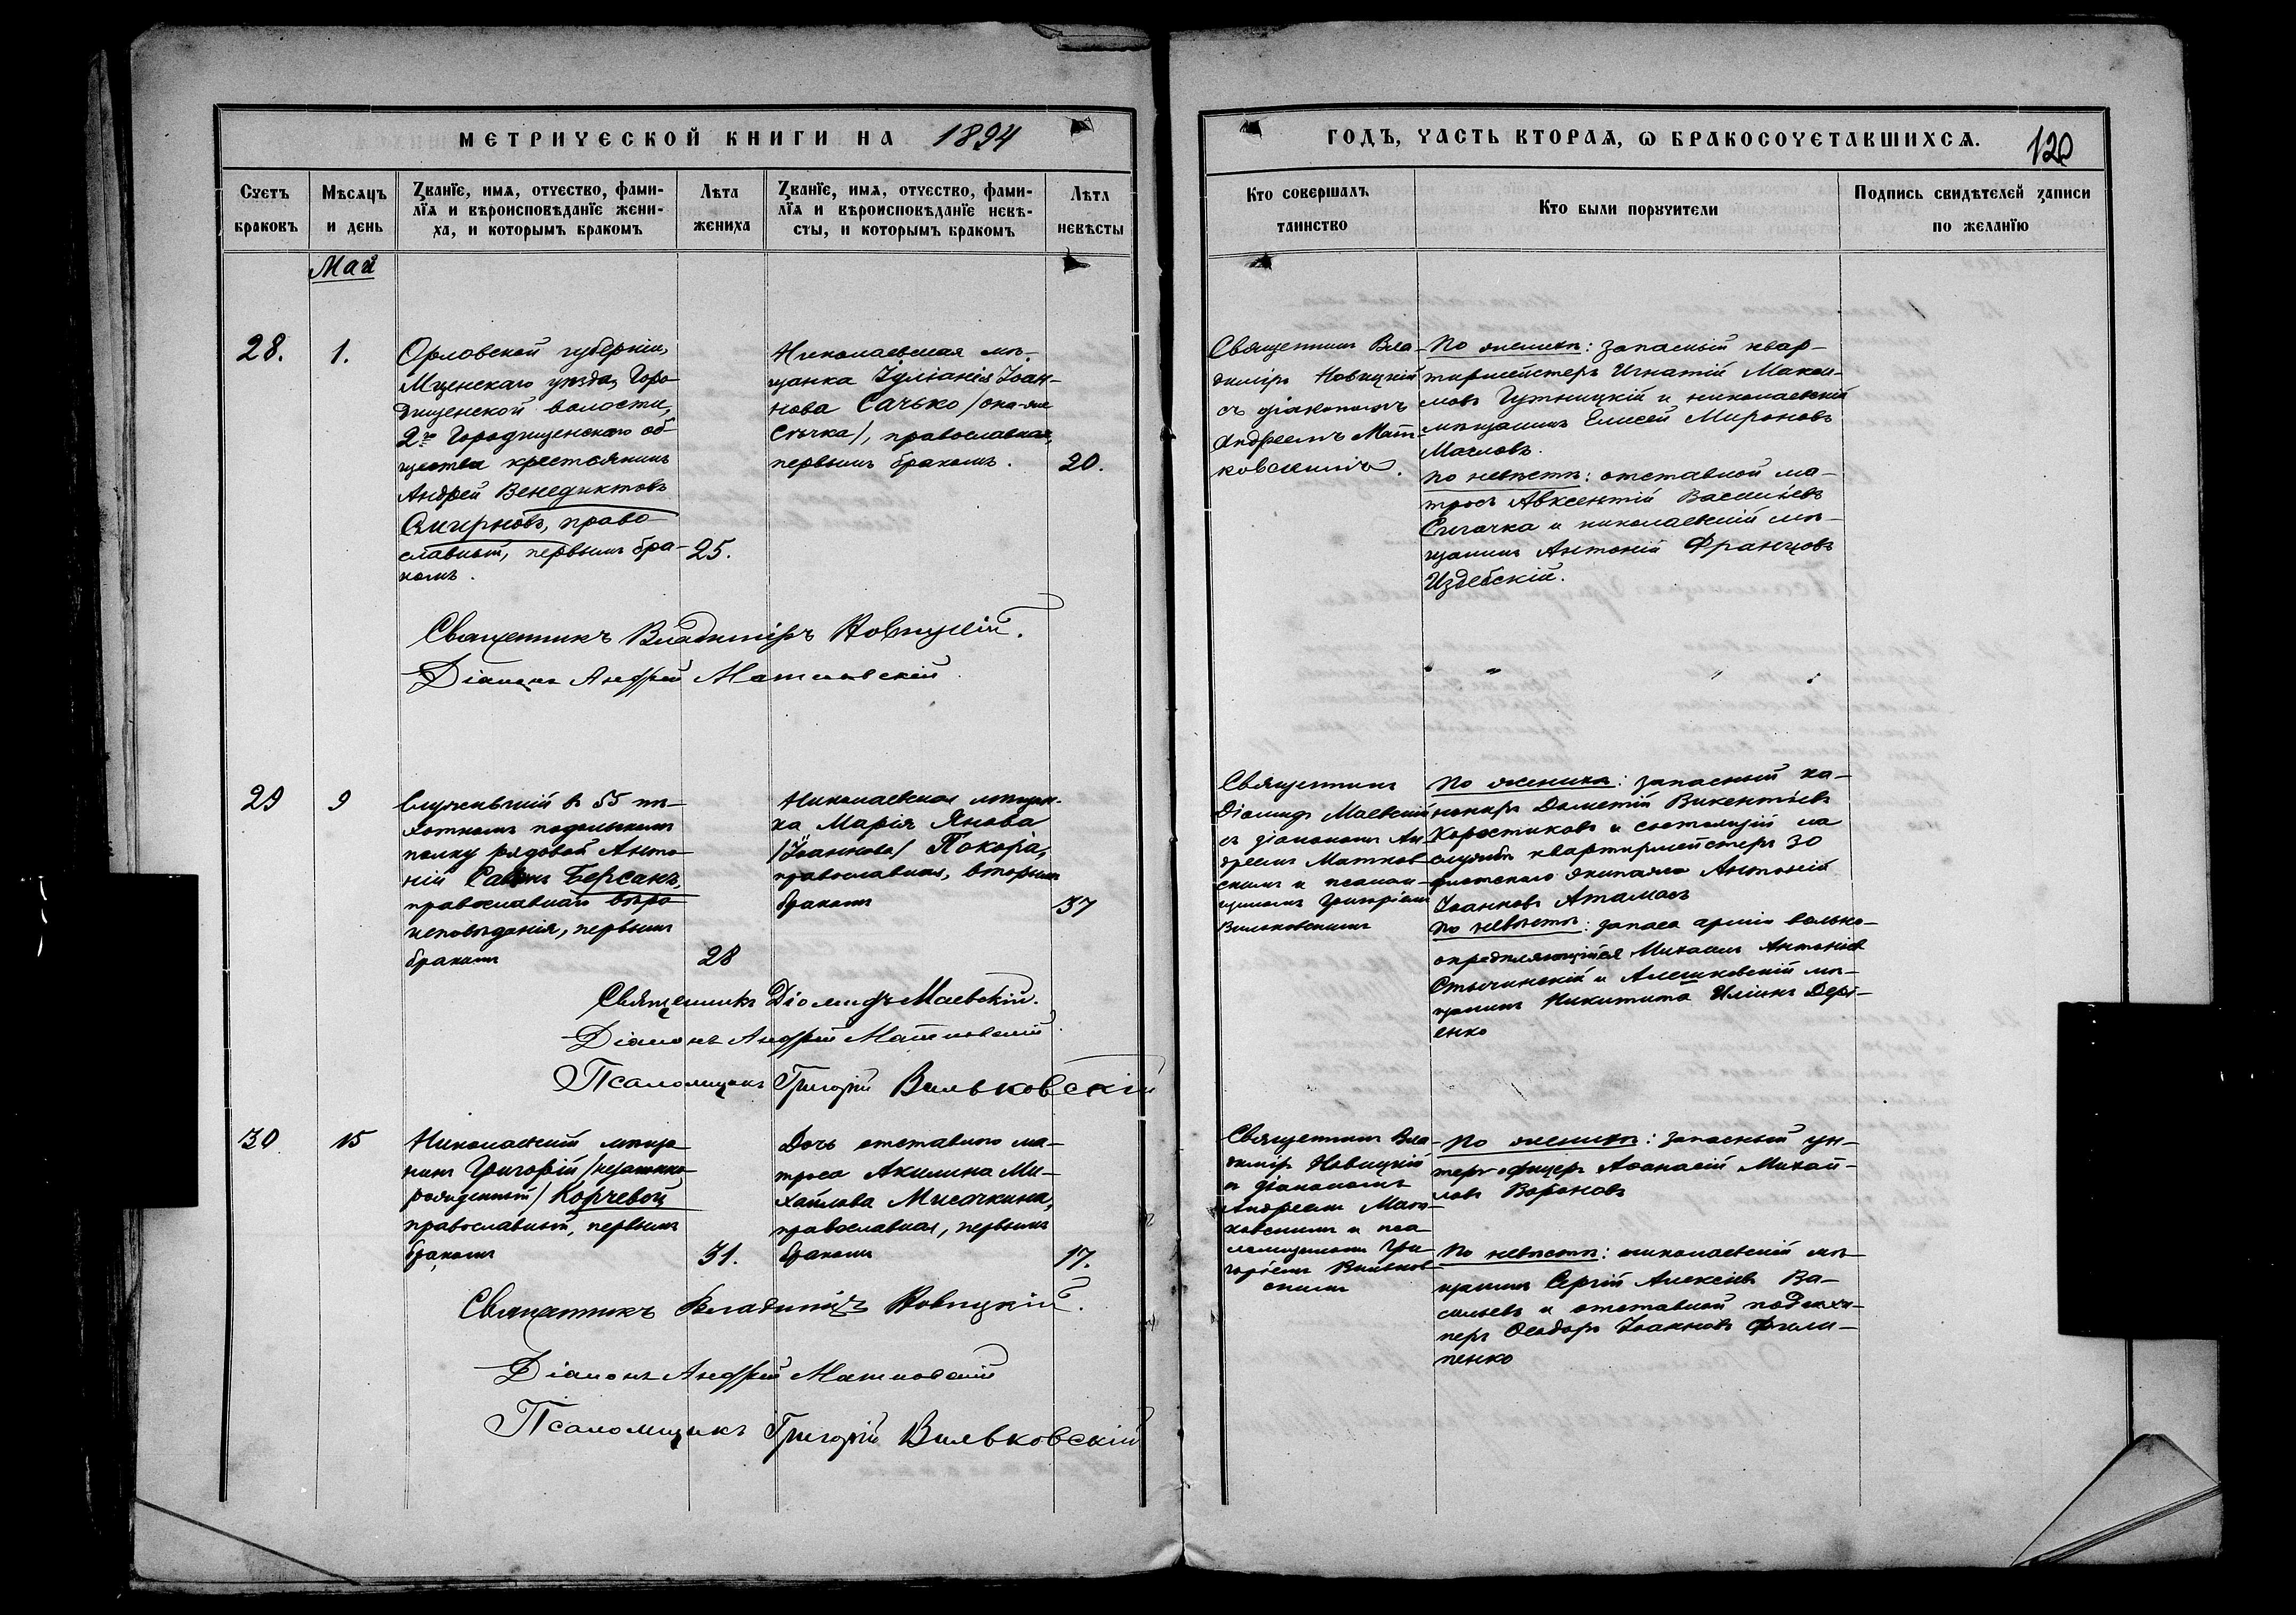 МЕТРИЧЕСКОЙ КНИГИ НА 1894
ГОДЪ, ЧАСТЬ ВТОРАЯ, Ѡ БРАКОСОЧЕТАВШИХСЯ.
120
Счетъ браковъ
Мѣсяцъ и день
Званїе, имя, отчество, фами-
лїя и вѣроисповѣданїе жени-
ха, и которымъ бракомъ
Лѣта жениха
Званїе, имя, отчество, фами-
лїя и вѣроисповѣданїе невѣ-
сты, и которымъ бракомъ
Лѣта невѣсты
Кто совершалъ таинство
Кто были порꙋчители
Подпись свидѣтелей записи
по желанїю
Май
28.
1.
Орловской губерніи,
Мценскаго уѣзда, Горо-
дищенской волости,
2го Городищенскаго об-
щества крестьянинъ
Андрей Венедиктовъ
Смирновъ, право-
славный, первымъ бра-
комъ.
25.
Николаевская мѣ-
щанка Іуліанія Іоан-
нова Сачько /она-же
Сѣчка/, православная,
первымъ бракомъ.
20.
Священникъ Вла-
диміръ Новицкій
съ діакономъ
Андреемъ Мат-
ковскимъ.
По женихѣ: запасный квар-
тирмейстеръ Игнатій Макси-
мовъ Гутницкій и николаевскій
мѣщанинъ Елисей Мироновъ
Масловъ.
По невѣстѣ: отставной ма-
тросъ Авксентій Васильевъ
Сигачка и николаевскій мѣ-
щанинъ Антоній Францовъ
Издебскій.
Священникъ Владиміръ Новицкій.
Діаконъ Андрей Матковскій.
29
9
Служившій въ 55 пѣ-
хотномъ подольскомъ
полку рядовой Анто-
ній Берсанъ,
православнаго вѣро-
исповѣданія, первымъ
бракомъ
28
Николаевская мѣщан-
ка Марія Янова
/Іоаннова/ Покора,
православная, вторымъ
бракомъ
37
Священникъ
Діомидъ Маевскій
съ діакономъ Ан-
дреемъ Матков-
скимъ и псалом-
щикомъ Григоріемъ
Вильковскимъ
По женихѣ: запасный ка-
нониръ Дометій Викентьевъ
Коростиковъ и состоящій на
службѣ квартирмейстеръ 30
флотскаго экипажа Антоній
Іоанновъ Атамасъ
По невѣстѣ: запаса арміи вольно-
опредѣляющійся Михаилъ Антоніевъ
Стычинскій и Алешковскій мѣ-
щанинъ Никита Иліинъ Дері-
енко
Священникъ Діомидъ Маевскій.
Діаконъ Андрей Матковскій.
Псаломщикъ Григорій Вильковскій
30
15
Николаевскій мѣща-
нинъ Григорій /незаконно-
рожденный/ Корчевой
православный, первымъ
бракомъ
31.
Дочь отставного ма-
троса Акилина Ми-
хайлова Мисочкина,
православная, первымъ
бракомъ
17.
Священникъ Вла-
диміръ Новицкій
съ діакономъ
Андреемъ Мат-
ковскимъ и пса-
ломщикомъ Гри-
горіемъ Вильков-
скимъ
По женихѣ: запасный ун-
теръ-офицеръ Аѳанасій Михай-
ловъ Вороновъ
По невѣстѣ: николаевскій мѣ-
щанинъ Сергій Алексіевъ Ва-
сильевъ и отставной подшки-
перъ Ѳеодоръ Іоанновъ Фили-
пенко
Священникъ Владиміръ Новицкій.
Діаконъ Андрей Матковскій
Псаломщикъ Григорій Вильковскій